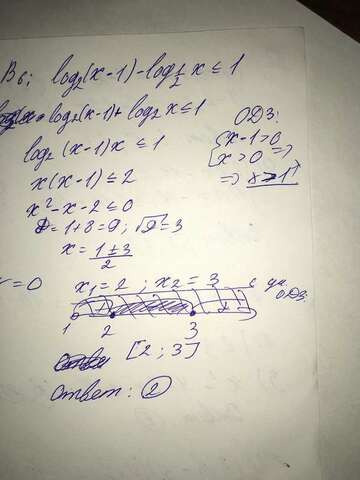 В6; log₂(x-1)-log_{1/2} x ≤ 1
log₂(x-1)+log₂x≤1
ОДЗ:
log₂(x-1)x ≤ 1
{x-1>0
x>0 =>
x(x-1)≤2
=> x>1
x²-x-2≤0
D=1+8=9; √9=3
x = (1±3)/2
=0
x₁=2; x₂=3
с уч. ОДЗ:
1 2 3
[2;3]
ответ: ②